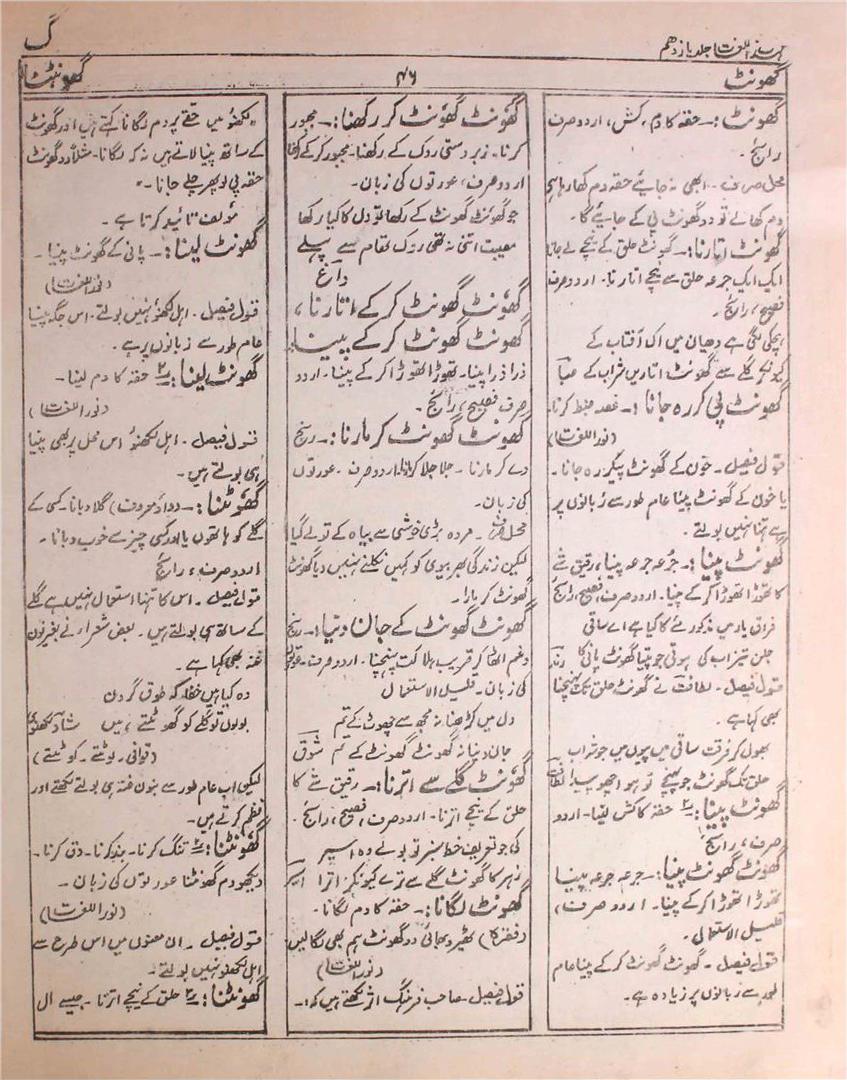 گ
مہذب اللغت جلد یازدھم
گھونٹ
۴۶
گھونٹنا
گھونٹ :۔ حقہ کا دم، کش، اردو صرف
رائج۔
محل صرف ۔ ابھی نہ جائیے حقہ دم کھا رہا ہے
دم کھالے تو دو گھونٹ پی کے جائیے گا۔
گھونٹ اتارنا :۔ گھونٹ حلق کے نیچے لے جانا
ایک ایک جرعہ حلق سے نیچے اتارنا۔ اردو صرف
فصیح، رائج۔
ہچکی لگی ہے دھیان میں اک آفتاب کے
کیونکر گلے سے گھونٹ اتاریں شراب کے صبا
گھونٹ پی کر رہ جانا :۔ غصہ ضبط کرنا۔
(نوراللغت)
قول فیصل ۔ خون کے گھونٹ پیکر رہ جانا۔
یا خون کے گھونٹ پینا عام طور سے زبانوں پر
ہے تنہا نہیں بولتے۔
گھونٹ پینا :۔ جرعہ جرعہ پینا، رقیق شے
کا تھوڑا تھوڑا کر کے پینا۔ اردو صرف، فصیح، رائج
فراق یار میں مذکور مئے کا کیا ہے اے ساقی
جلن تیزاب کی ہوتی جو پیتا گھونٹ پانی کا رند
قول فیصل۔ لطافت نے گھونٹ حلق تک پہنچنا
بھی کہا ہے۔
بھول کر فرقت ساقی میں پیوں میں جو شراب
حلق تک گھونٹ جو پہنچے تو ہو اچھو پیدا لطافت
گھونٹ پینا :۲؎ حقہ کا کش لینا۔ اردو
صرف، رائج
گھونٹ گھونٹ پینا :۔ جرعہ جرعہ پینا
تھوڑا تھوڑا کر کے پینا۔ اردو صرف،
قلیل الاستعمال۔
قول فیصل ۔ گھونٹ گھونٹ کر کے پینا عام
طور سے زبانوں پر زیادہ ہے۔
گھونٹ گھونٹ کر رکھنا :۔ مجبور
کرنا۔ زبردستی روک کے رکھنا۔ مجبور کر کے رکھنا
اردو صرف، عورتوں کی زبان۔
جو گھونٹ گھونٹ کے رکھا تو دل کا کیا رکھا
مصیبت اتنی نہ تھی روک تھام سے پہلے
داغ
گھونٹ گھونٹ کر کے اتارنا،
گھونٹ گھونٹ کر کے پینا
ذرا ذرا پینا۔ تھوڑا تھوڑا کر کے پینا۔ اردو
صرف فصیح، رائج۔
گھونٹ گھونٹ کر مارنا :۔ رنج
دے کر مارنا۔ جلا جلا کر مارنا۔ اردو صرف۔ عورتوں
کی زبان۔
محل صرف ۔ مردہ بڑی خوشی سے بیاہ کے تو لے گیا
لیکن زندگی بھر بیوی کو کہیں نکلنے نہیں دیا گھونٹ
گھونٹ کر مارا۔
گھونٹ گھونٹ کے جان دینا :۔ رنج
و غم اٹھا کر قریب ہلاکت پہنچنا۔ اردو صرف۔ عورتوں
کی زبان۔ قلیل الاستعمال
دل میں کڑھنا نہ مجھ سے چھوٹ کے تم
جان دینا نہ گھونٹ گھونٹ کے تم شوق
گھونٹ گلے سے اترنا :۔ رقیق شے کا
حلق کے نیچے اترنا۔ اردو صرف، فصیح، رائج۔
کی جو تعریف خط سبز تو بولے وہ اسیر
زہر کا گھونٹ گلے سے ترے کیونکر اترا اسیر
گھونٹ لگانا :۔ حقہ کا دم لگانا۔
(فقرہ) ٹھیرو بھائی دو گھونٹ ہم بھی لگالیں
(نوراللغت)
قول فیصل۔ صاحب فرہنگ اثر لکھتے ہیں کہ :۔
"لکھنؤ میں حقے پر دم لگانا کہتے ہیں اور گھونٹ
کے ساتھ پینا لاتے ہیں نہ کہ لگانا۔ مثلاً دو گھونٹ
حقہ پی لو پھر چلے جانا۔"
مؤلف تائید کرتا ہے۔
گھونٹ لینا :۔ پانی کے گھونٹ پینا۔
(نوراللغت)
قول فیصل۔ اہل لکھنؤ نہیں بولتے۔ اس جگہ پینا
عام طور سے زبانوں پر ہے۔
گھونٹ لینا :۲؎ حقہ کا دم لینا۔
(نوراللغت)
قول فیصل ۔ اہل لکھنؤ اس محل پر بھی پینا
ہی بولتے ہیں۔
گھونٹنا :۔ (واؤ معروف) گلا دبانا۔ کسی کے
گلے کو ہاتھوں یا اور کسی چیز سے خوب دبانا۔
اردو صرف، رائج
قول فیصل ۔ اس کا تنہا استعمال نہیں ہے گلے
کے ساتھ ہی بولتے ہیں۔ بعض شعراء نے بغیر نون
غنہ بھی کہا ہے۔
وہ کیا ہیں خفا کہ طوق گردن
بولوں تو گلے کو گھوٹتے ہیں شاد لکھنوی
(قوافی۔ لوٹتے۔ کوٹتے)
لیکن اب عام طور سے بنون غنہ ہی بولتے لکھتے اور
نظم کرتے ہیں۔
گھونٹنا :۲؎ تنگ کرنا۔ بند کرنا۔ دق کرنا۔
دیکھو دم گھونٹنا عورتوں کی زبان۔
(نوراللغت)
قول فیصل ۔ ان معنوں میں اس طرح سے
اہل لکھنؤ نہیں بولتے۔
گھونٹنا :۳؎ حلق کے نیچے اترنا۔ جیسے ال